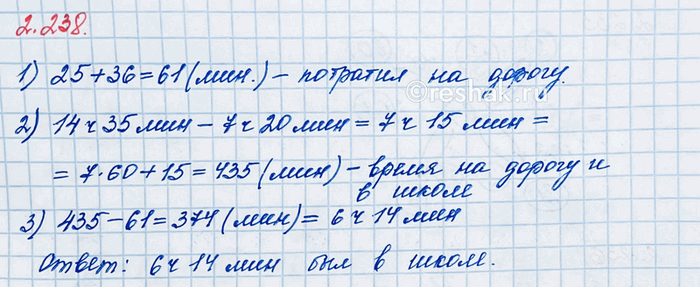 2.238.
1) 25+36=61(мин.) – потратил на дорогу.
©reshak.ru
2) 14 ч 35 мин – 7 ч 20 мин = 7 ч 15 мин =
= 7·60+15=435(мин) – время на дорогу и
в школе
3) 435–61=374(мин)= 6 ч 14 мин
Ответ: 6 ч 14 мин был в школе.